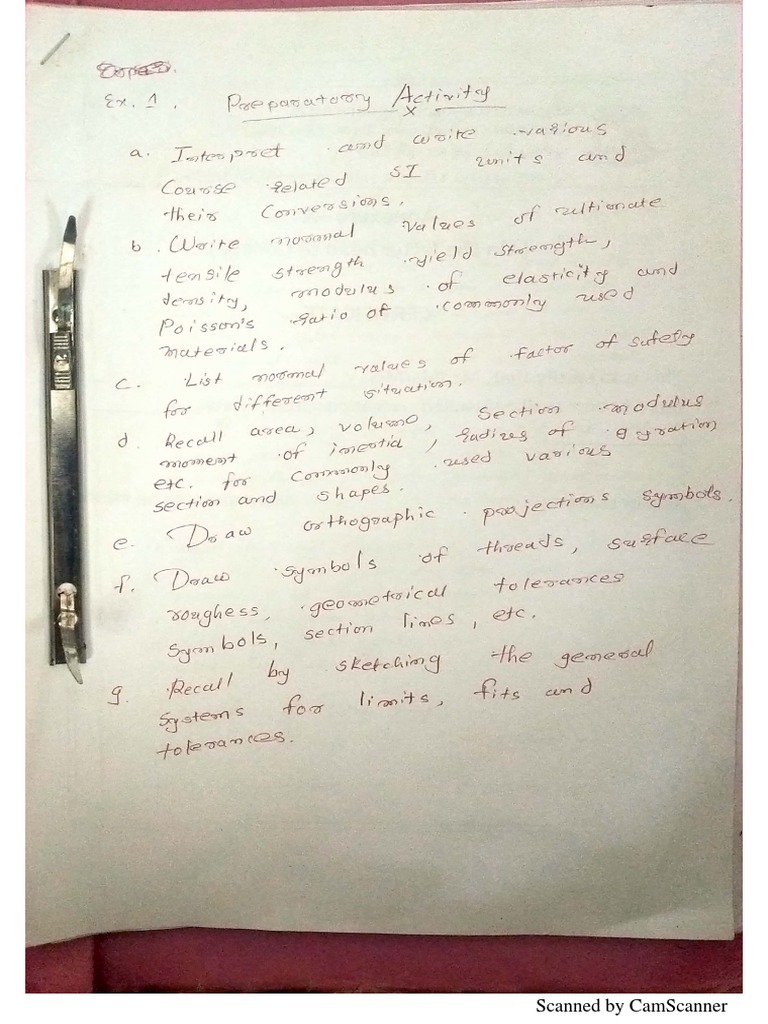 Ex. 1. Preparatory Activity
a. Interpret and write various
Course related SI units and
their Conversions.
b. Write normal values of ultimate
tensile strength yield strength,
density, modulus of elasticity and
Poisson's ratio of commonly used
materials.
c. List normal values of factor of safety
for different situation.
d. Recall area, volume, section modulus
moment of inertia, radius of gyration
etc. for commonly used various
section and shapes.
e. Draw orthographic projections symbols.
f. Draw symbols of threads, surface
roughess, geometrical tolerances
symbols, section lines, etc.
g. Recall by sketching the general
systems for limits, fits and
tolerances.
Scanned by CamScanner